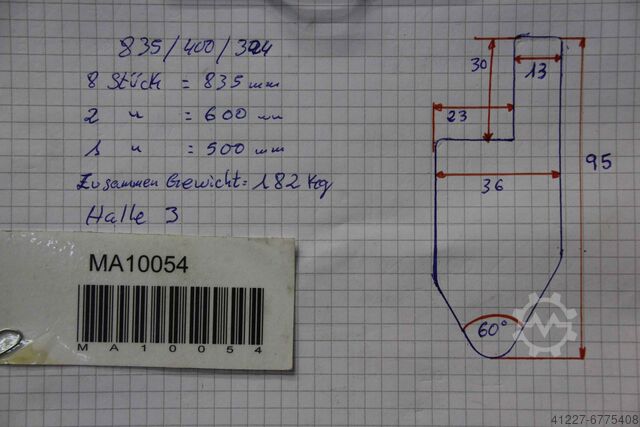 835/400/394
8 Stück = 835 mm
2 " = 600 mm
1 " = 500 mm
Zusammen Gewicht = 182 Kg
Halle 3
MA10054
MA10054
30
13
23
95
36
60°
41227-6775408